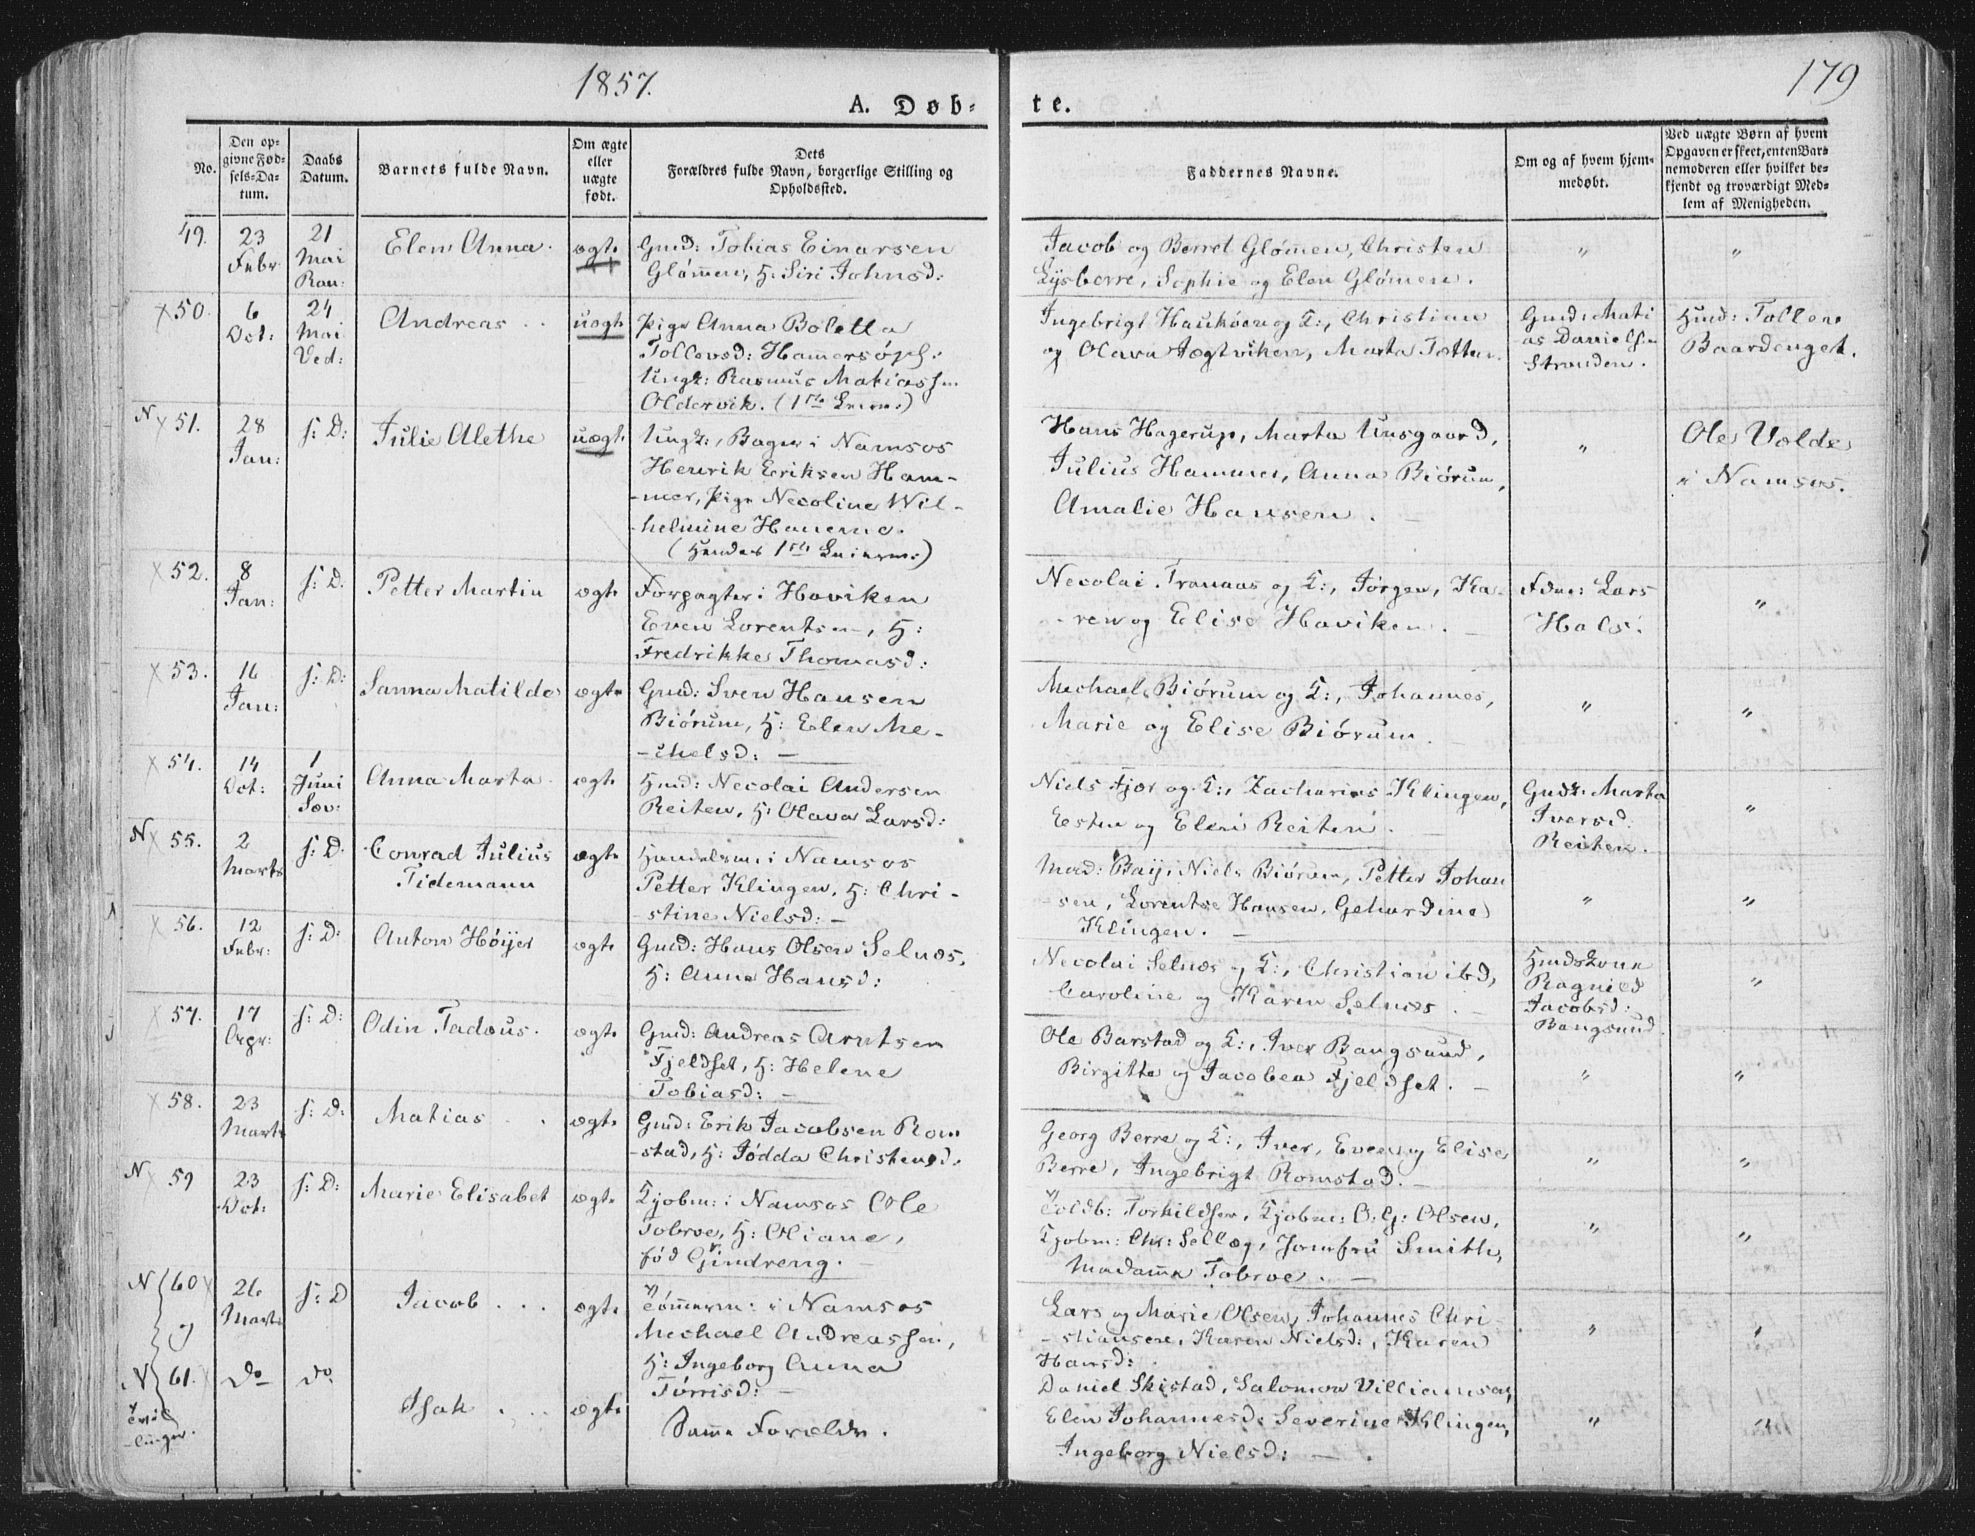 1857.
179
A. Døb-
te.
No.
Den op-
givne Fød-
sels-Da-
tum.
Daabs
Datum.
Barnets fulde Navn.
Om ægte
eller
uægte
født.
Dets
Forældres fulde Navn, borgerlige Stilling og
Opholdssted.
Faddernes Navne.
Om og af hvem hjem-
medøbt.
Ved uægte Børn af hvem
Opgaven er skeet, enten Bar-
nemoderen eller hvilket be-
kjendt og troværdigt Med-
lem af Menigheden.
49.
23
Febr
21
Mai
Ran:
Elen Anna.
ægte
Gmd: Tobias Einarsen
Glømmen, H: Siri Johnsd:
Jacob og Berret Glømmen, Christen
Lysberre, Sophie og Elen Glømen.
"
"
x 50.
6
Oct:
24
Mai
Ved:
Andreas . .
uægte
Pige Anna Boletta
Tollevsd: Hamersøph:
Ungk: Rasmus Matiassen
Oldervik. (1ste Leierm:)
Ingebrigt Haukøen og K:, Christian
og Olava Jægtviken, Marta
Gmd: Mati
as Danielsen
Stranden.
Hmd: Tollev
Baardenget.
N x 51.
28
Jan:
s: D:
Julie Alethe
uægte
Ungk:, Bager i Namsos
Henrik Eriksen Ham-
-mer, Pige Necoline Wil-
-helmine
(Hendes 1ste Leierm:)
Hans Hagerup, Marta Unsgaard,
Julius Hammer, Anna Biørum,
Amalie Hansen. -
"
Ole Volde
i Namsos.
x 52.
8
Jan:
s: D.
Petter Martin
ægte
Forpagter i Haviken
Even Lorentsen, H:
Fredrikke Thomasd:
Necolai Tranaas og K:, Jørgen, Ka-
-ren og Elise Haviken. -
Fdm: Lars
Hals.
"
x 53.
16
Jan:
s: D:
Sanna Matilde
ægte
Gmd: Sven Hansen
Biørum, H: Elen Me-
-chelsd: -
Mechael Biørum og K:, Johannes,
Marie og Elise Biørum.
"
"
x 54.
14
Oct:
1
Juni
Sæv:
Anna Marta.
ægte
Hmd: Necolai Andersen
Reiten, H: Olava Larsd:
Niels Fjær og K:, Zacharias Klingen,
Esten og Elen Reiten. -
Gmdk: Marta
Iversd:
Reiten.
"
N x 55.
2
Marts
s: D.
Conrad Julius
Tidemann
ægte
Handelsm: i Namsos
Petter Klingen, H: Chri-
-stine Nielsd: -
Mad: Bay, Niels Biørum, Petter Johan
-sen, Lorentse Hansen, Gehardine
Klingen. -
"
"
x 56.
12
Febr:
s: D:
Anton Høyer
ægte
Gmd: Hans Olsen Selnæs,
H: Anne Hansd:
Necolai Selnæs og K:, Christian ibd,
Caroline og Karen Selnæs. -
Hmdskone
Ragnild
Jacobsd:
Bangsund.
"
x 57.
17
Apr:
s: D:
Odin Tadæus.
ægte
Gmd: Andreas Arntsen
Fjeldset, H: Helene
Tobiasd: -
Ole Barstad og K:, Iver Bangsund,
Birgitte og Jacobea Fjeldset. -
"
"
x 58.
23
Marts
s: D:
Matias . .
ægte
Gmd: Erik Jacobsen Rom
-stad, H: Jødda Christensd:
Georg Berre og K:, Iver, Even og Elise
Berre, Ingebrigt Romstad. -
"
"
N x 59
23
Oct:
s: D:
Marie Elisabet
ægte
Kjøbm: i Namsos Ole
Tobroe, H: Oliane,
fød Gjendreng. -
Toldb: Torkildsen, Kjøbm: O. G: Olsen,
Kjøbm: Chr: Sellæg, Jomfru Smith,
Madamm Tobroe. -
"
"
N 60 x
26
Marts
s: D
Jacob . . .
ægte
Tømmerm: i Namsos
Mechael Andreassen,
H: Ingeborg Anna
Tørrisd: -
Lars og Marie Olsen, Johannes Chri-
-stiansen, Karen Nielsd:, Karen
Hansd:
"
"
og
N 61. x
Do
do
Isak . . .
ægte
Samme Forældre.
Daniel Skistad, Salomon Villiamsen,
Elen Johannesd: Severine Klingen,
Ingeborg Nielsd: - .
"
"
Tvil
-linger.